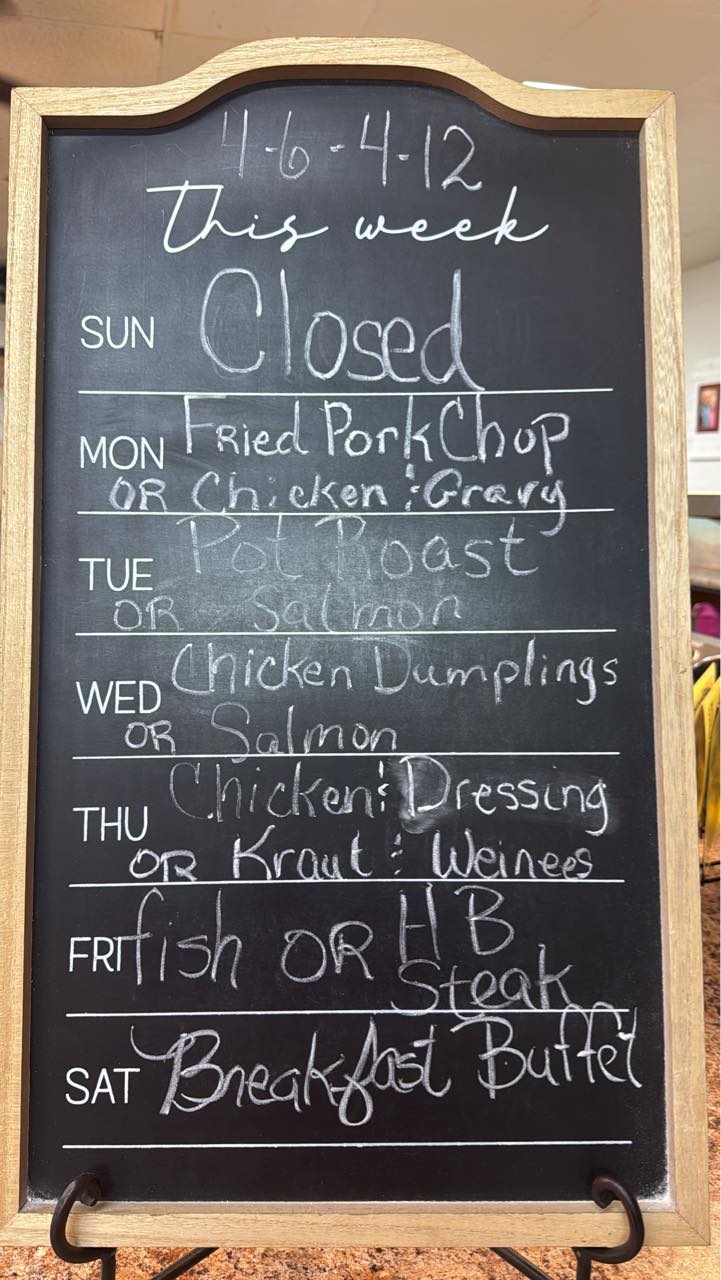 4-6-4-12
This week
SUN Closed
MON Fried Pork Chop
OR Chicken & Gravy
TUE Pot Roast
OR Salmon
WED Chicken Dumplings
OR Salmon
THU Chicken & Dressing
OR Kraut & Weinees
FRI fish OR H B
Steak
SAT Breakfast Buffet